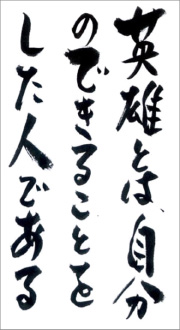 英雄とは、自分
のできることを
した人である